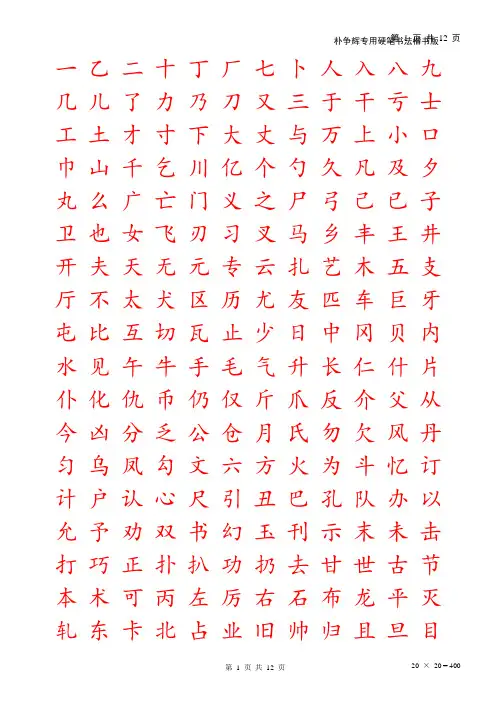 朴争辉专用硬笔书法楷书版
第 1 页 共 12 页
一 乙 二 十 丁 厂 七 卜 人 入 八 九
几 儿 了 力 乃 刀 又 三 于 干 亏 士
工 土 才 寸 下 大 丈 与 万 上 小 口
巾 山 千 乞 川 亿 个 勺 久 凡 及 夕
丸 么 广 亡 门 义 之 尸 弓 己 已 子
卫 也 女 飞 刃 习 叉 马 乡 丰 王 井
开 夫 天 无 元 专 云 扎 艺 木 五 支
厅 不 太 犬 区 历 尤 友 匹 车 巨 牙
屯 比 互 切 瓦 止 少 日 中 冈 贝 内
水 见 午 牛 手 毛 气 升 长 仁 什 片
仆 化 仇 币 仍 仅 斤 爪 反 介 父 从
今 凶 分 乏 公 仓 月 氏 勿 欠 风 丹
匀 乌 凤 勾 文 六 方 火 为 斗 忆 订
计 户 认 心 尺 引 丑 巴 孔 队 办 以
允 予 劝 双 书 幻 玉 刊 示 末 未 击
打 巧 正 扑 扒 功 扔 去 甘 世 古 节
本 术 可 丙 左 厉 右 石 布 龙 平 灭
轧 东 卡 北 占 业 旧 帅 归 且 旦 目
第 1 页 共 12 页
20 × 20=400